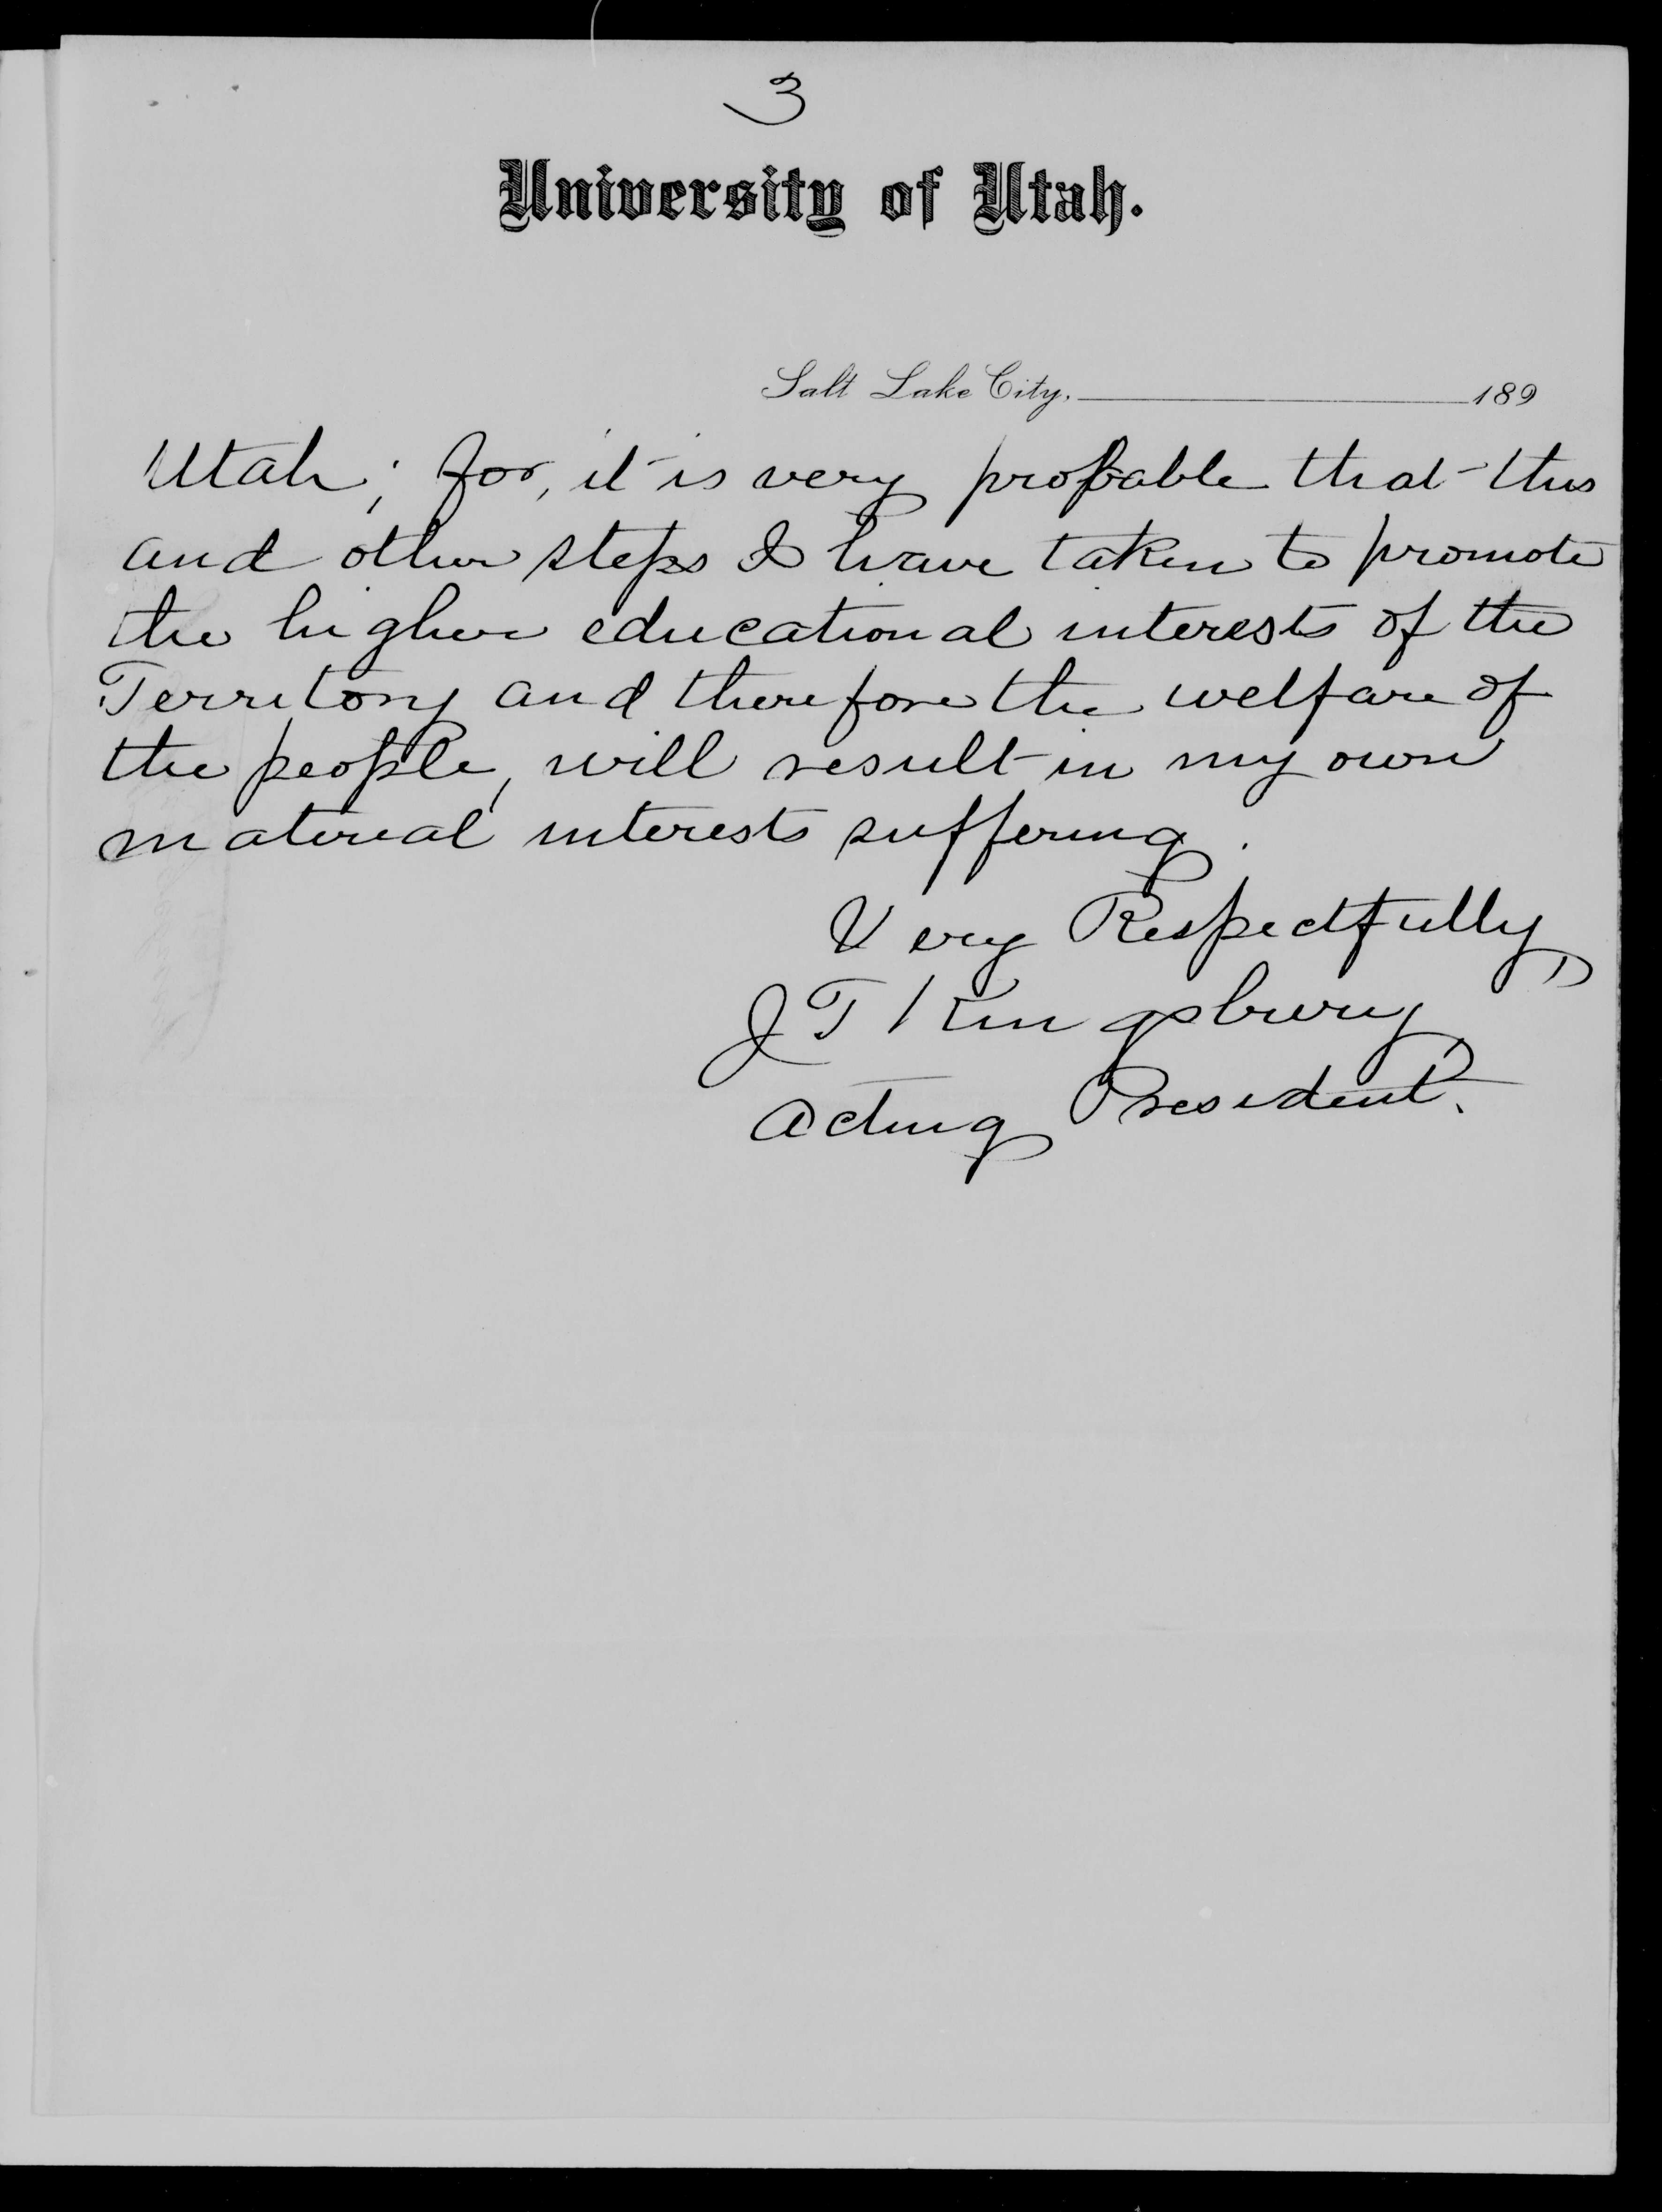 3
University of Utah.
Salt Lake City, 189
Utah; for, it is very probable that this
and other steps I have taken to promote
the higher educational interests of the
Territory and therefore the welfare of
the people, will result in my own
material interests suffering.
Very Respectfully,
J T Kingsbury,
Acting President.